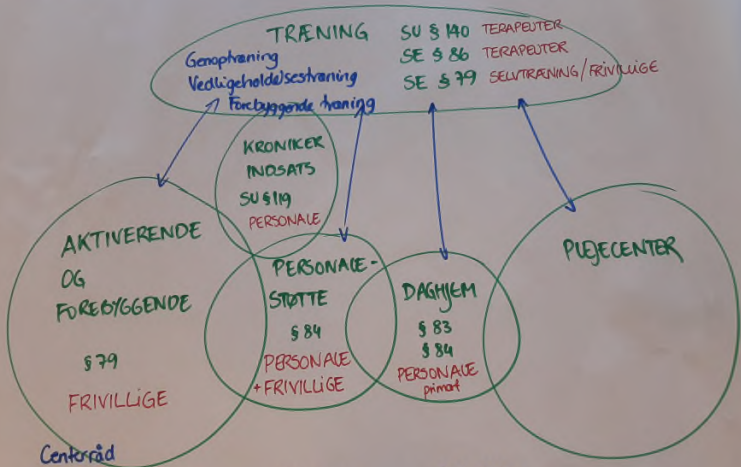 TRÆNING
Genoptræning
Vedligeholdelsestræning
Forebyggende træning
SU § 140 TERAPEUTER
SE § 86 TERAPEUTER
SE § 79 SELVTRÆNING/FRIVILLIGE
KRONIKER
INDSATS
SU § 119
PERSONALE
AKTIVERENDE
OG
FOREBYGGENDE
§ 79
FRIVILLIGE
PERSONALE-
STØTTE
§ 84
PERSONALE
+ FRIVILLIGE
DAGHJEM
§ 83
§ 84
PERSONALE
primært
PLEJECENTER
Centerråd